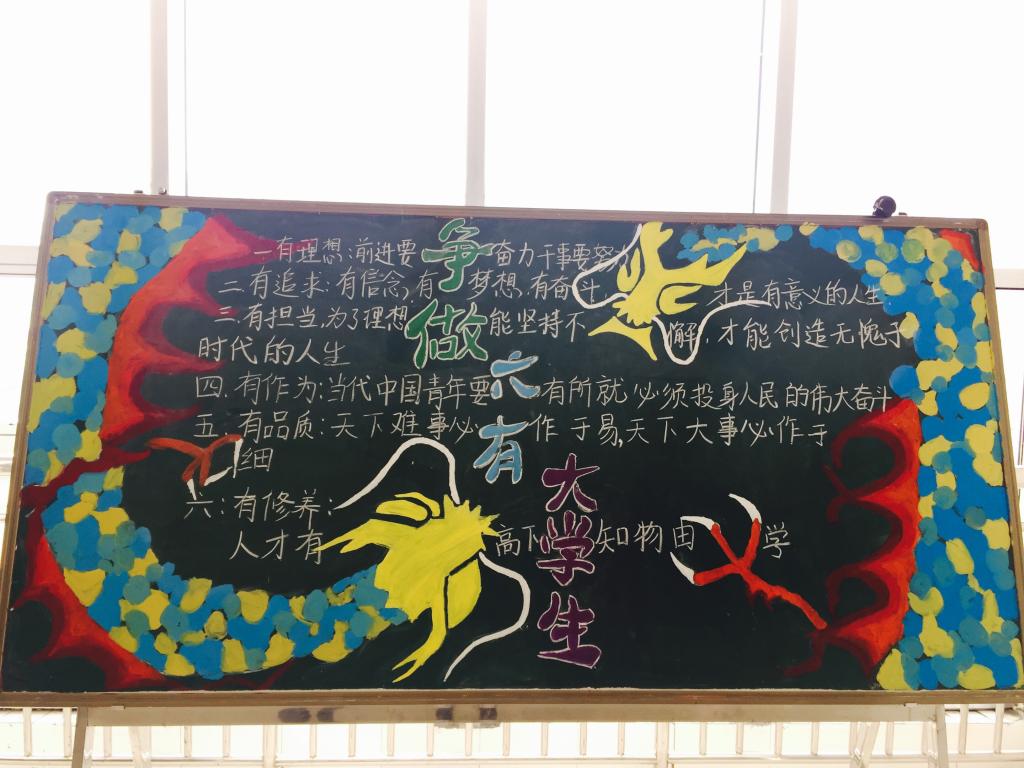 争做六有大学生
一有理想:前进要奋力干事要努力
二有追求:有信念,有梦想.有奋斗才是有意义的人生
三.有担当,为了理想能坚持不懈.才能创造无愧于
时代的人生
四.有作为:当代中国青年要有所就必须投身人民的伟大奋斗
五.有品质:天下难事必作于易,天下大事必作于
细
六:有修养:
人才有高下知物由学